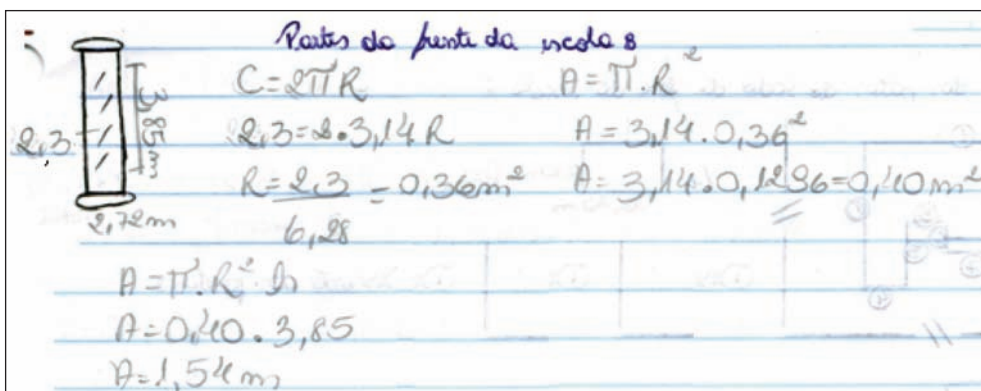 Partes da frente da escola 8
3,85 m
2,3
2,72m
C=2πR
2,3=2.3,14R
R=2,3 = 0,36m²
6,28
A=π.R²
A=3,14.0,36²
A=3,14.0,1296=0,40m²
A=π.R².h
A=0,40.3,85
A=1,54m